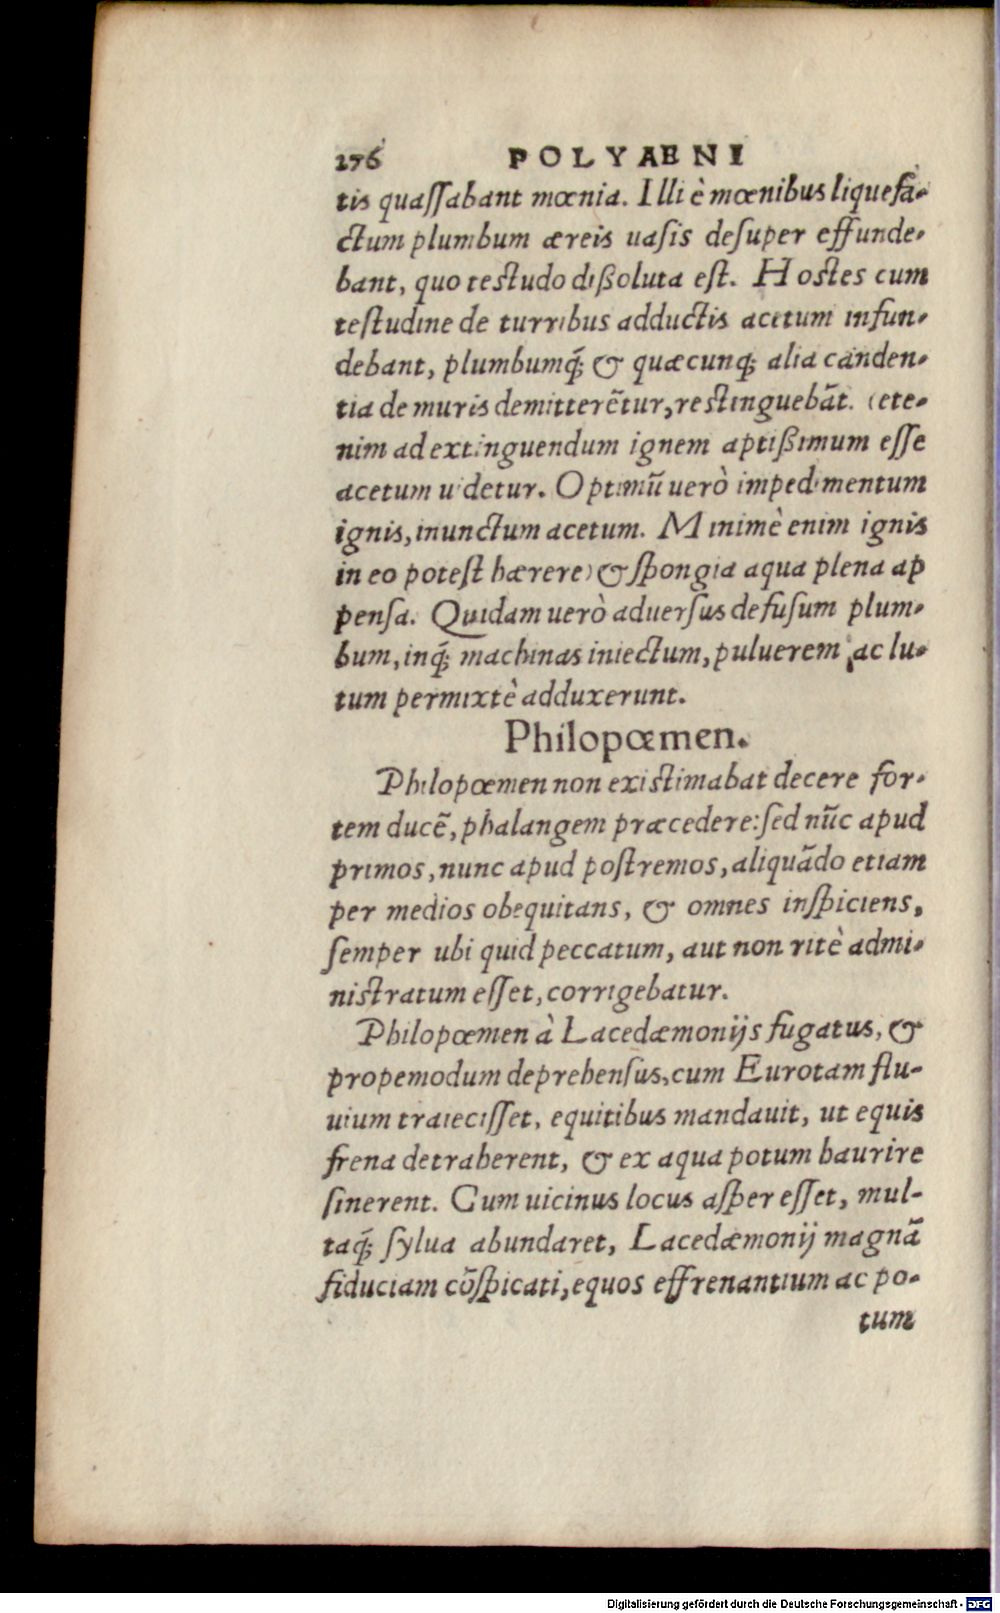 276 POLYAENI
tis quaſſabant mœnia. Illi è mœnibus liquefa-
ctum plumbum æreis uaſis deſuper effunde-
bant, quo teſtudo dißoluta eſt. Hoſtes cum
teſtudine de turribus adductis acetum infun-
debant, plumbumq́; & quæcunq; alia canden-
tia de muris demitterẽtur, reſtinguebãt. (ete-
nim ad extinguendum ignem aptißimum eſſe
acetum uidetur. Optimũ uerò impedimentum
ignis, inunctum acetum. Minimè enim ignis
in eo poteſt hærere) & ſpongia aqua plena ap
penſa. Quidam uerò aduerſus defuſum plum-
bum, inq́; machinas iniectum, puluerem ac lu-
tum permixtè adduxerunt.
Philopœmen.
Philopœmen non exiſtimabat decere for-
tem ducẽ, phalangem præcedere: ſed nũc apud
primos, nunc apud poſtremos, aliquãdo etiam
per medios obequitans, & omnes inſpiciens,
ſemper ubi quid peccatum, aut non ritè admi-
niſtratum eſſet, corrigebatur.
Philopœmen à Lacedæmonijs fugatus, &
propemodum deprehenſus, cum Eurotam flu-
uium traieciſſet, equitibus mandauit, ut equis
frena detraherent, & ex aqua potum haurire
ſinerent. Cum uicinus locus aſper eſſet, mul-
taq́; ſylua abundaret, Lacedæmonij magnã
fiduciam cõſpicati, equos effrenantium ac po-
tum
Digitalisierung gefördert durch die Deutsche Forschungsgemeinschaft - DFG